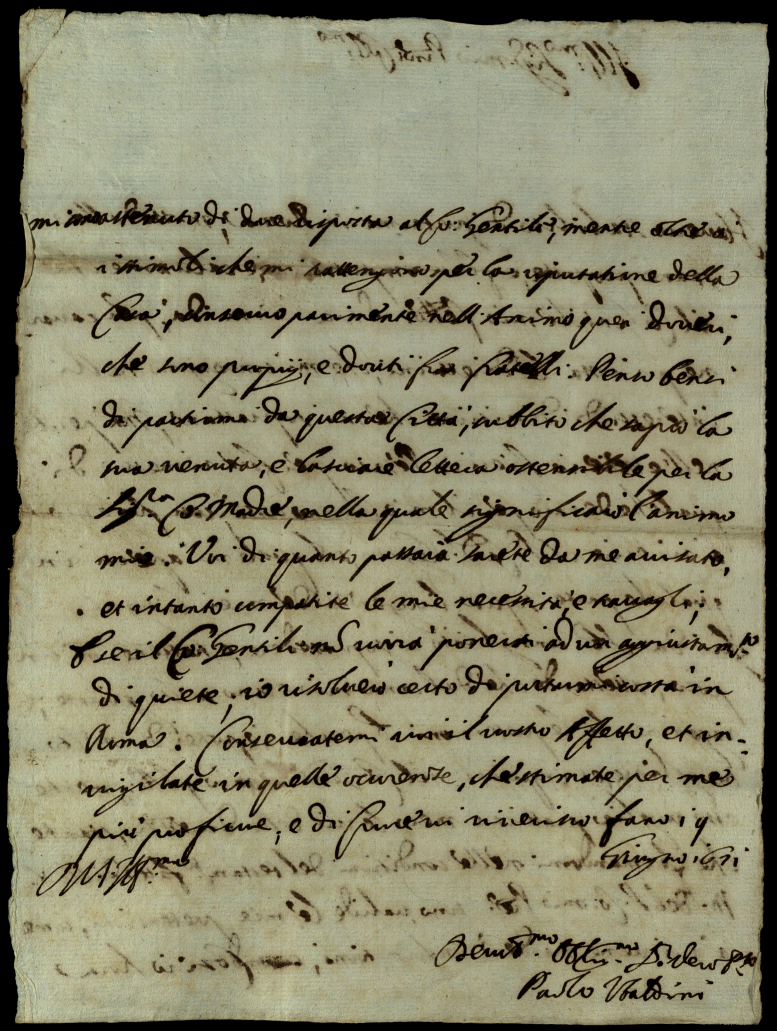 mi sono astenuto di dare risposta al Co: Gentili, mentre oltre a
i stimoli che mi rattengono per la riputatione della
Casa, conservo parimente nell'Animo quei doveri,
che sono proprij, e douti fra fratelli. Penso bensi
di partirmi da questa Città, subbito che saprò la
sua venuta, e lasciare lettera ostensibile per la
Sig.ra Co: Madre, nella quale significarò l'animo
mio. Voi di quanto passarà sarete da me avisato,
et intanto compatite le mie necessità, e travagli,
e se il Co: Gentili non vorrà ponersi ad un aggiustam.to
di quiete, io risolverò certo di portarmi costà in
Roma. Conservatemi voi il vostro Affetto, et in-
vigilate in quelle occorenze, che stimate per me
più proficue, e di cuore vi riverisco fano i 9
Giugno
Devot.mo Oblig.mo S.re vero
Paolo Ubaldini